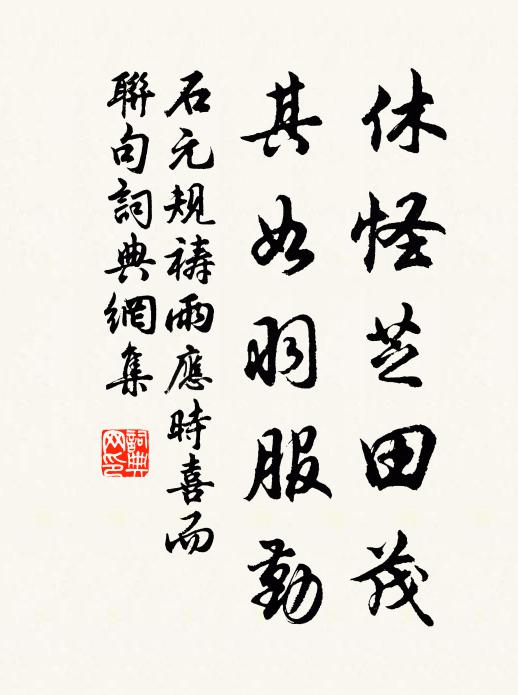 休怪芝田茂
其如羽服勤
石元规祷雨應時喜而
聯句詞典網集
詞典网印